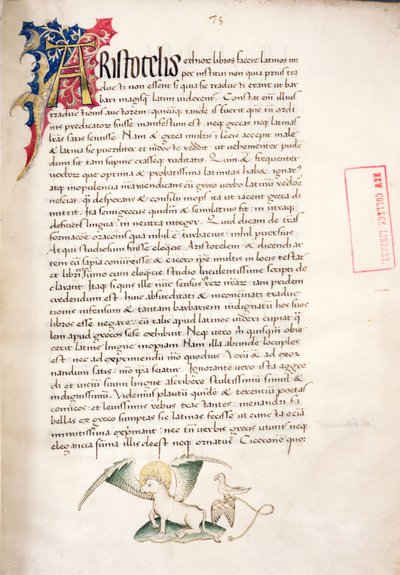 78
ARistotelis ethicor libros facere latinos nu
per institui non quia prius tra
ducti non essent si quia sic traducti erant ut bar
bari magisq latini uiderent. Constat em illius
traductionis auctorem quicuq tande is fuerit que in ordi
nis predicator fuisse manifestum est neq grecas neq latinas
lras satis sciuisse. Nam & greca multis i locis accepit male
& latina sic pueriliter et indocte reddit ut uehementer puden
dum sit tam supine crasseq ruditatis. Quin & frequenter
uerbor que optima & probatissima latinitas habet ignarus
atq in opulencia nra mendicans cu greco uerbo latinu reddere
nesciat qsi desperans & consilii inops ita ut iacent greca di
mittit. Ita semigrecus quidem & semilatinus fit in utraq
deficiens lingua in neutra integer. Quid dicam de trans
formacone oraconis qua nihil e turbacius nihil puersius
Atqui studiosum fuisse eloquencie Aristotelem & dicendi ar
tem cu sapia coniunxisse & cicero ipse multis in locis testat
et libri ipsius cum eloquencie studio luculentissime scripti de
clarant. Itaq si quis ille nunc sensus rerum nrarum e credendum
est huic absurditati & inconcinnitati traduc
tionis infensum & tantam barbariem indignatu hos suos
libros esse negare cu talis apud latinos uideri cupiat qua
lem apud grecos sese exhibuit. Neq uero quisquam obie
cerit latine lingue inopiam. Nam illa abunde locuples
est nec ad exprimendu modo quoduis Veru & ad exor
nandum satis ipsa sciatur. Ignorante uero ista aggre
di et uiciu suum lingue ascribere stultissimu simul &
indignissimu. Videmus plautu quide & terenciu poetas
comicos et leuissimis rebus tractantes menandri fa
bellas ex greco sumptas sic latinas fecisse ut cuncta ecia
minutissima exprimant nec tn uerbis grecis utunt neq
elegancia summa illis deest neq ornatus. Cicerone quoq
NEW COLLEGE LIBRARY